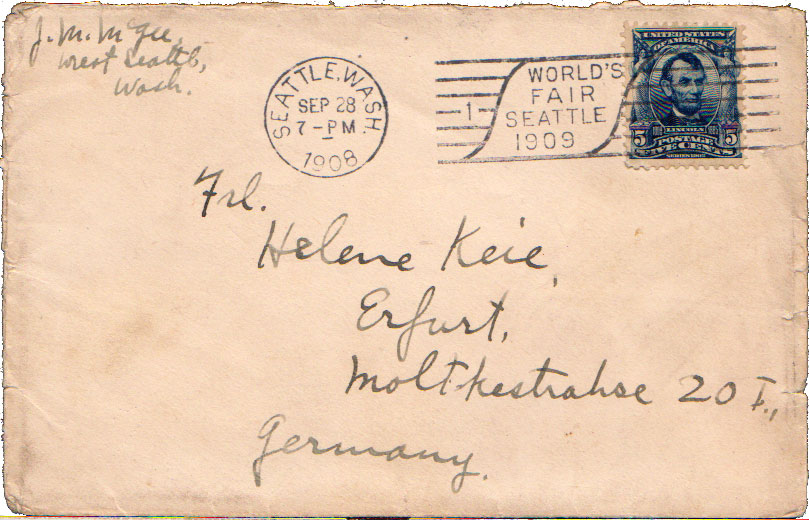 J. M. McGee,
West Seattle,
Wash.
SEATTLE, WASH.
SEP 28
7-PM
1908
1
WORLD'S
FAIR
SEATTLE
1909
UNITED STATES
OF AMERICA
LINCOLN
5 POSTAGE 5
FIVE CENTS
SERIES 1902
Frl.
Helene Keie,
Erfurt,
Moltkestrahse 20 I.,
Germany.